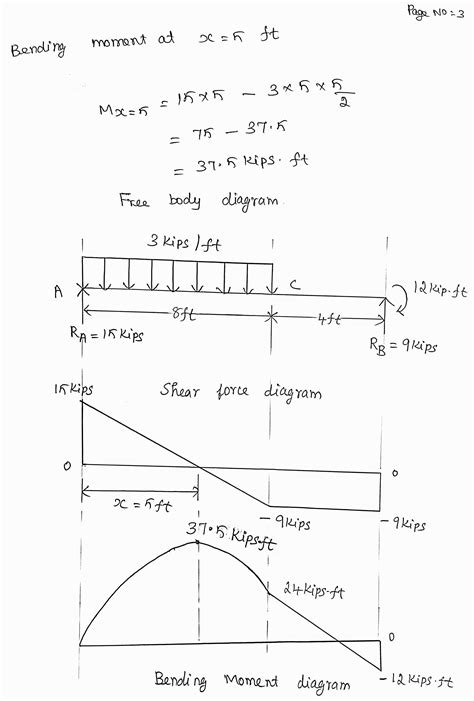 Page No:3
Bending moment at x = 5 ft
Mx=5 = 15×5 - 3×5×5/2
= 75 - 37.5
= 37.5 kips.ft
Free body diagram.
3 kips/ft
A
C
12 kip.ft
8ft
4ft
RA = 15 kips
RB = 9 kips
15 kips
Shear force diagram
0
0
x = 5ft
-9 kips
-9 kips
37.5 kipsft
24 kips.ft
0
-12 kips.ft
Bending Moment diagram